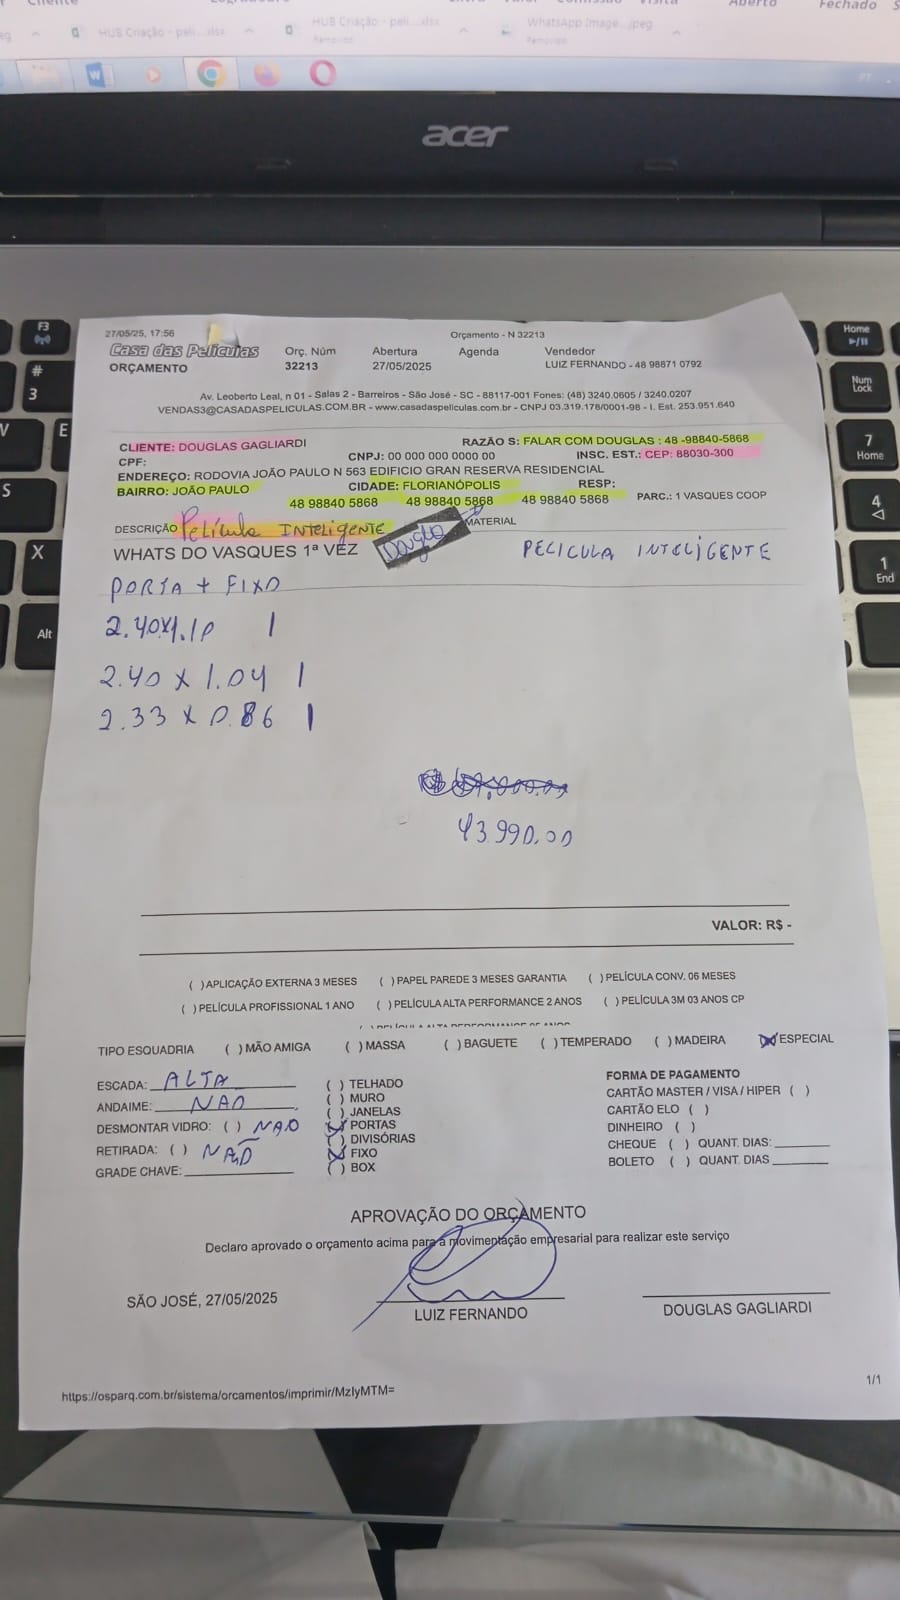 HUB Criação - peli....xlsx
HUB Criação - peli....xlsx
WhatsApp Image....jpeg
Aberto
Fechado
acer
F3
Home
#
3
Num
Lock
E
7
Home
S
4
X
1
End
Alt
27/05/25, 17:56
Orçamento - N 32213
Casa das Películas
Orç. Núm
Abertura
Agenda
Vendedor
ORÇAMENTO
32213
27/05/2025
LUIZ FERNANDO - 48 98871 0792
Av. Leoberto Leal, n 01 - Salas 2 - Barreiros - São José - SC - 88117-001 Fones: (48) 3240.0605 / 3240.0207
VENDAS3@CASADASPELICULAS.COM.BR - www.casadaspeliculas.com.br - CNPJ 03.319.178/0001-98 - I. Est. 253.951.640
CLIENTE: DOUGLAS GAGLIARDI
RAZÃO S: FALAR COM DOUGLAS : 48 -98840-5868
CPF:
CNPJ: 00 000 000 0000 00
INSC. EST.: CEP: 88030-300
ENDEREÇO: RODOVIA JOÃO PAULO N 563 EDIFICIO GRAN RESERVA RESIDENCIAL
BAIRRO: JOÃO PAULO
CIDADE: FLORIANÓPOLIS
RESP:
48 98840 5868
48 98840 5868
48 98840 5868
PARC.: 1 VASQUES COOP
DESCRIÇÃO Película INTELIGENTE
MATERIAL
WHATS DO VASQUES 1ª VEZ
Douglas
PELICULA INTELIGENTE
PORTA + FIXO
2.40x1.10 1
2.40 x 1.04 1
2.33 x 0.86 1
43.990.00
VALOR: R$ -
( )APLICAÇÃO EXTERNA 3 MESES ( )PAPEL PAREDE 3 MESES GARANTIA ( )PELÍCULA CONV. 06 MESES
( )PELÍCULA PROFISSIONAL 1 ANO ( )PELÍCULA ALTA PERFORMANCE 2 ANOS ( )PELÍCULA 3M 03 ANOS CP
TIPO ESQUADRIA ( )MÃO AMIGA ( )MASSA ( )BAGUETE ( )TEMPERADO ( )MADEIRA (X)ESPECIAL
ESCADA: ALTA
ANDAIME: NAO
DESMONTAR VIDRO: ( ) NAO
RETIRADA: ( ) NÃO
GRADE CHAVE:
( )TELHADO
( )MURO
( )JANELAS
(X)PORTAS
( )DIVISÓRIAS
(X)FIXO
( )BOX
FORMA DE PAGAMENTO
CARTÃO MASTER / VISA / HIPER ( )
CARTÃO ELO ( )
DINHEIRO ( )
CHEQUE ( ) QUANT. DIAS:
BOLETO ( ) QUANT. DIAS
APROVAÇÃO DO ORÇAMENTO
Declaro aprovado o orçamento acima para a movimentação empresarial para realizar este serviço
SÃO JOSÉ, 27/05/2025
LUIZ FERNANDO
DOUGLAS GAGLIARDI
1/1
https://osparq.com.br/sistema/orcamentos/imprimir/MzIyMTM=